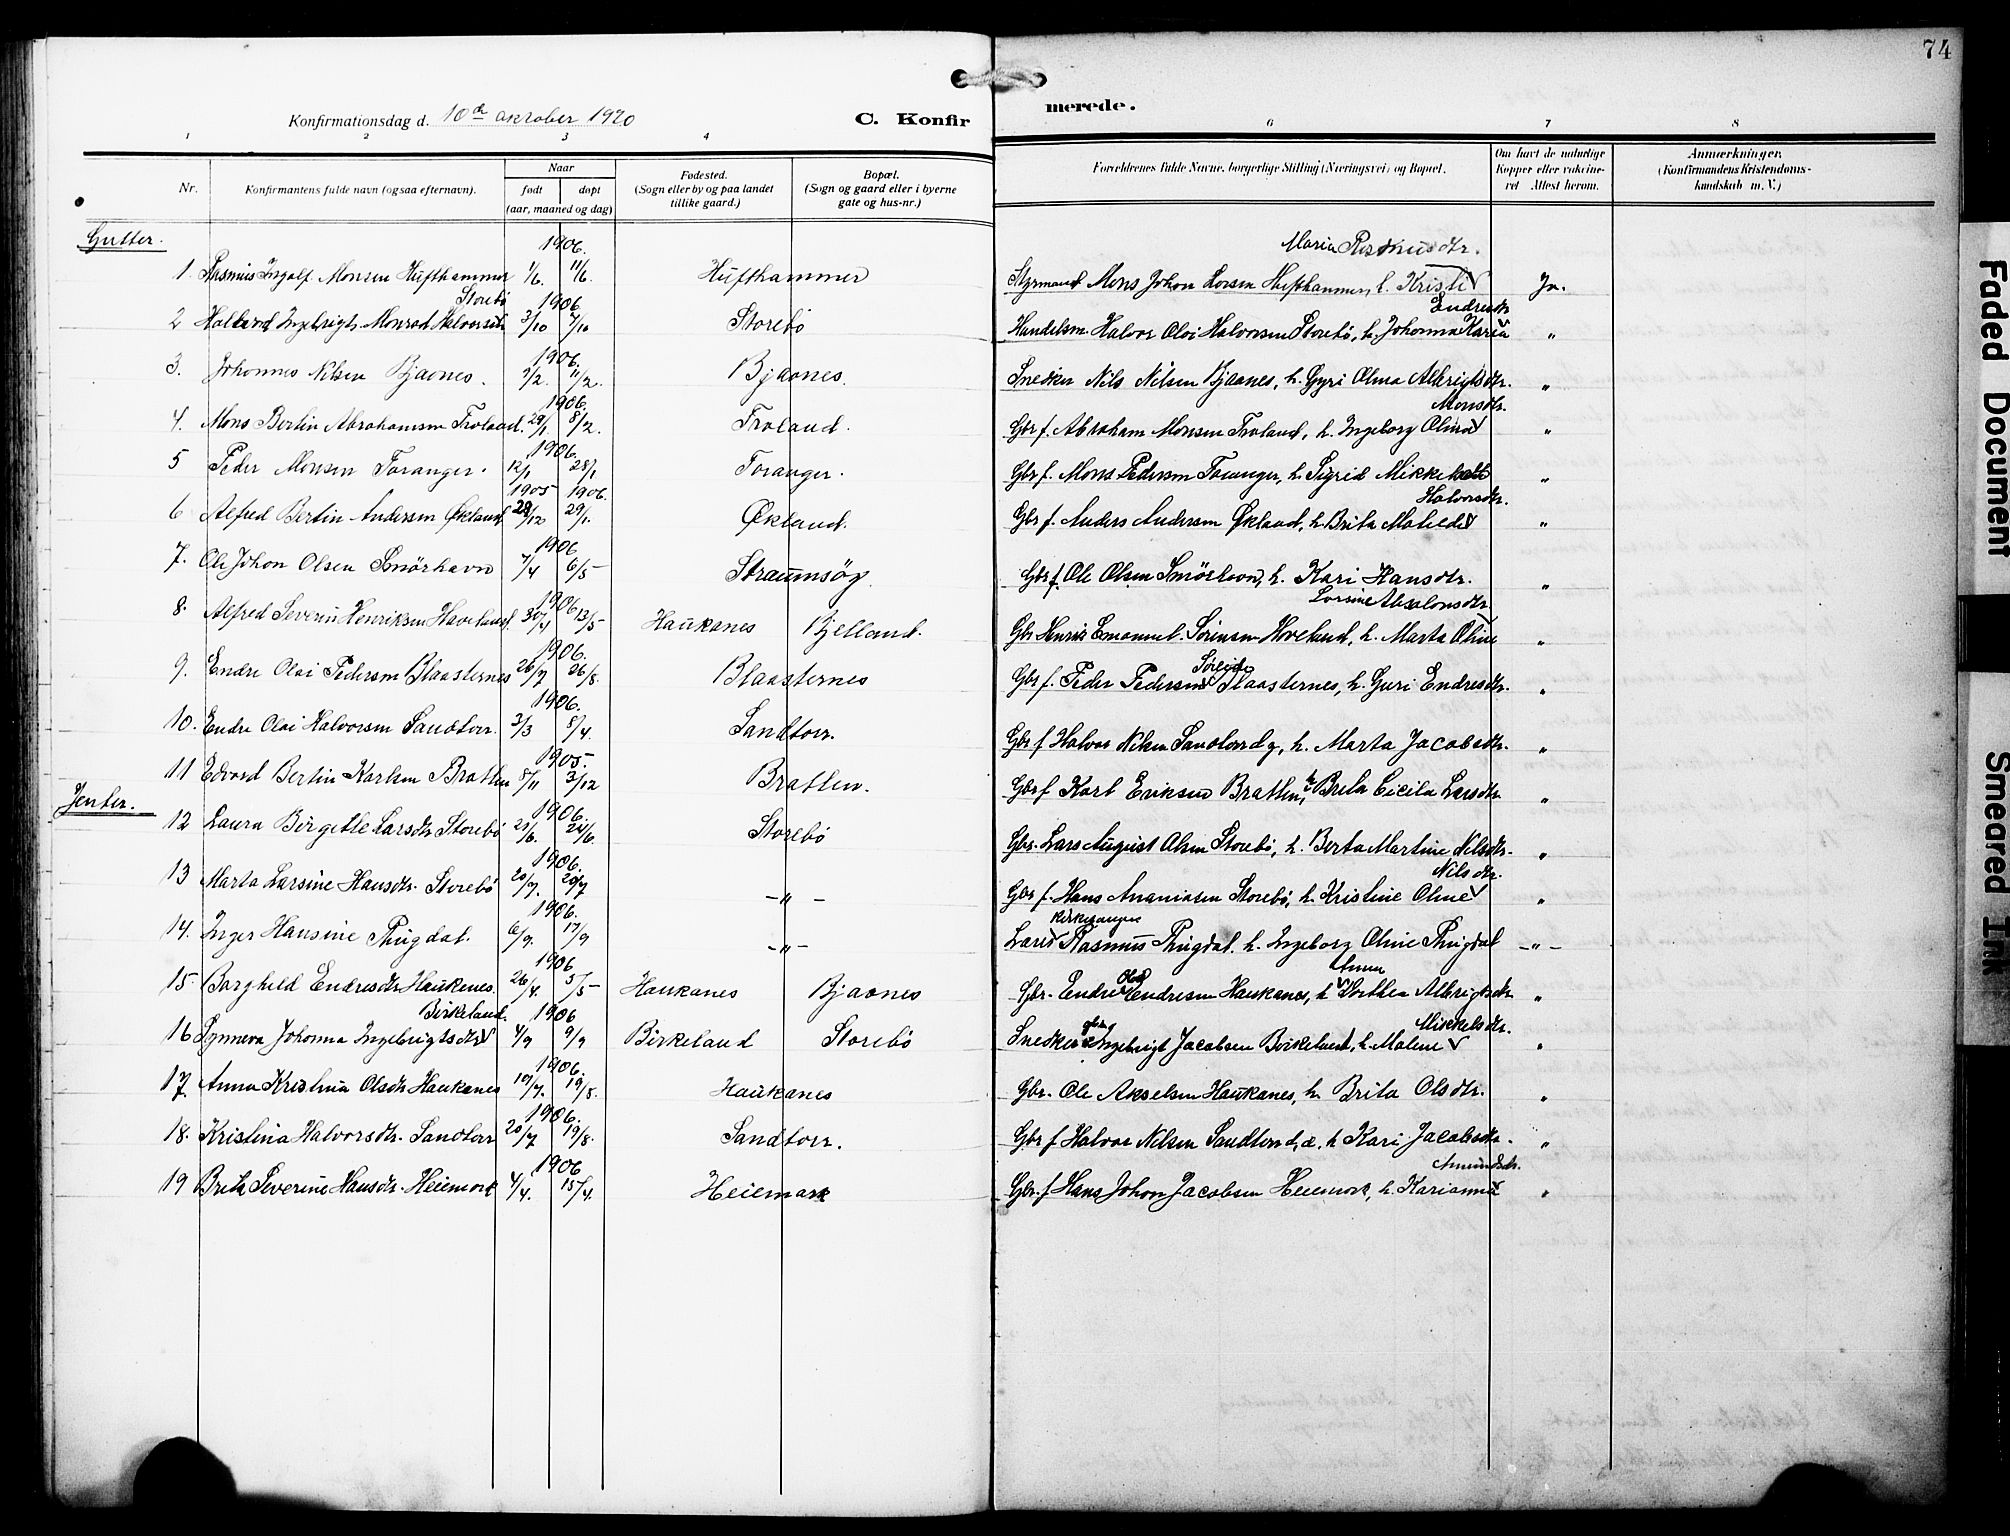 74
Konfirmationsdag d. 10de oktober 1920
C. Konfirmerede.
1 2 3 4 6 7 8
Nr. Konfirmantens fulde navn (ogsaa efternavn). Naar født døpt (aar, maaned og dag) Fødested. (Sogn eller by og paa landet tillike gaard.) Bopæl. (Sogn og gaard eller i byerne gate og hus-nr.) Forældrenes fulde Navne, borgerlige Stilling (Næringsvei) og Bopæl. Om havt de naturlige Kopper eller vaccineret Attest herom. Anmærkninger. (Konfirmandens Kristendomskundskab m. V.)
Gutter.
1906. Maria Rasmusdtr.
1 Rasmus Ingolf Monsen Hufthammer 1/6. 11/6. Hufthammer Styrmand Mons Johan Larsen Hufthammer, h. Kristi Ja.
Storebø 1906 Endresdtr
2 Halvard Ingebrigt Monrad Halvorsen 3/10 7/10 Storebø Handelsm. Halvor Olai Halvorsen Storebø, h. Johanna Karia "
1906.
3. Johannes Nilsen Bjaanes. 1/2. 11/2. Bjaanes. Snedker Nils Nilsen Bjaanes, h. Gyri Olina Albrigtsdtr. "
1906. Monsdtr.
4. Mons Bertin Abrahamsen Troland. 29/1 8/2. Troland. Gbr f. Abraham Monsen Troland, h. Ingeborg Olina "
1906.
5 Peder Monsen Toranger. 12/1 28/1 Toranger. Gbr f. Mons Pedersen Toranger, h. Sigrid Mikkelsdtr "
1905 1906. Halvorsdtr.
6 Alfred Bertin Andersen Økland 28/12 29/1. Økland. Gbr f. Anders Andersen Økland, h. Brita Matilde "
1906
7. Ole Johan Olsen Smørhavn 7/4 6/5 Straumsøy. Gbr f. Ole Olsen Smørhavn, h. Kari Hansdtr. "
1906 Larsine Absalonsdtr.
8. Alfred Severin Henriksen Haveland. 30/4 13/5 Haukanes Bjelland. Gbr Henrik Emanuel Sørensen Hoveland, h. Marta Oline "
1906. Søreide
9. Endre Olai Pedersen Blaasternes 26/7 26/8. Blaasternes Gbr f. Peder Pedersen Blaasternes, h. Guri Endresdtr. "
1906.
10. Endre Olai Halvorsen Sandtorr. 3/3 8/4. Sandtorr. Gbr f Halvor Nilsen Sandtorr d y, h. Marta Jacobsdtr. "
1905.
11 Edvard Bertin Karlsen Bratlen 5/11 3/12 Bratlen. Gbr f Karl Eriksen Bratlen, h Brita Cicilia Larsdtr "
Jenter. 1906.
12 Laura Birgitte Larsdtr Storebø 21/6. 24/6. Storebø Gbr. Lars August Olsen Storebø, h. Berta Martine Nilsdtr. "
1906. Nilsdtr.
13 Marta Larsine Hansdtr. Storebø 20/7. 29/7 -"- Gbr f. Hans Ananiasen Storebø, h. Kristine Oline "
1906. Kirkesanger
14. Inger Hansine Thugdal. 6/9. 17/9 -"- Lærer Rasmus Thugdal. h. Ingeborg Oline Thugdal -"-
1906 Olai Anna
15 Borghild Endresdtr Haukenes. 26/4. 5/5 Haukanes Bjaanes Gbr. Endre Endresen Haukanes, h Dorthea Albrigtsdtr "
Birkeland. 1906 gbr Mikkelsdtr.
16 Synneva Johanna Ingebrigtsdtr 4/9 9/9 Birkeland Storebø Snedker Ingebrigt Jacobsen Birkeland, h. Malene "
1906.
17. Anna Kristina Olsdtr Haukanes 10/7. 19/8. Haukanes Gbr. Ole Akselsen Haukanes, h. Brita Olsdtr. "
1906.
18. Kristina Halvorsdtr. Sandtorr 20/7 19/8. Sandtorr. Gbr f Halvor Nilsen Sandtorr d. æ. h Kari Jacobsdtr. "
1906 Amundsdtr.
19 Brita Severine Hansdtr. Heiemark 4/4. 15/4. Heiemark Gbr. f Hans Johan Jacobsen Heiemark, h. Karianna "
Faded Document
Smeared Ink